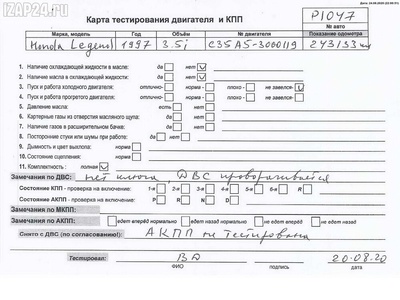 IZAP24.RU
Карта тестирования двигателя и КПП
P1047
№ авто
Марка, модель Год Объём № двигателя Показание одометра
Honda Legend 1997 3.5i C35A5-3000119 243133 км
1. Наличие охлаждающей жидкости в масле: да нет
2. Наличие масла в охлаждающей жидкости: да нет
3. Пуск и работа холодного двигателя: отлично- норма - плохо - не завелся-
4. Пуск и работа прогретого двигателя: отлично- норма - плохо - не завелся-
5. Давление масла: есть нет
6. Картерные газы из отверстия масляного щупа: да нет
7. Наличие газов в расширительном бачке: да нет
8. Посторонние стуки или шумы при работе: да нет
9. Дымность и цвет выхлопа: норма
10. Состояние сцепления: норма
11. Комплектность : полная
Замечания по ДВС: нет , ДВС проворачивается
Состояние КПП - проверка на включение: 1-я 2-я 3-я 4-я 5-я 6-я R
Состояние АКПП - проверка на включение: P R N D
Замечания по МКПП:
Замечания по АКПП: едет вперёд нормально едет назад нормально не едет вперёд не едет назад
Снято с ДВС (по согласованию): АКПП не тестирована
Тестировал: ВА 20.08.20
ФИО подпись дата